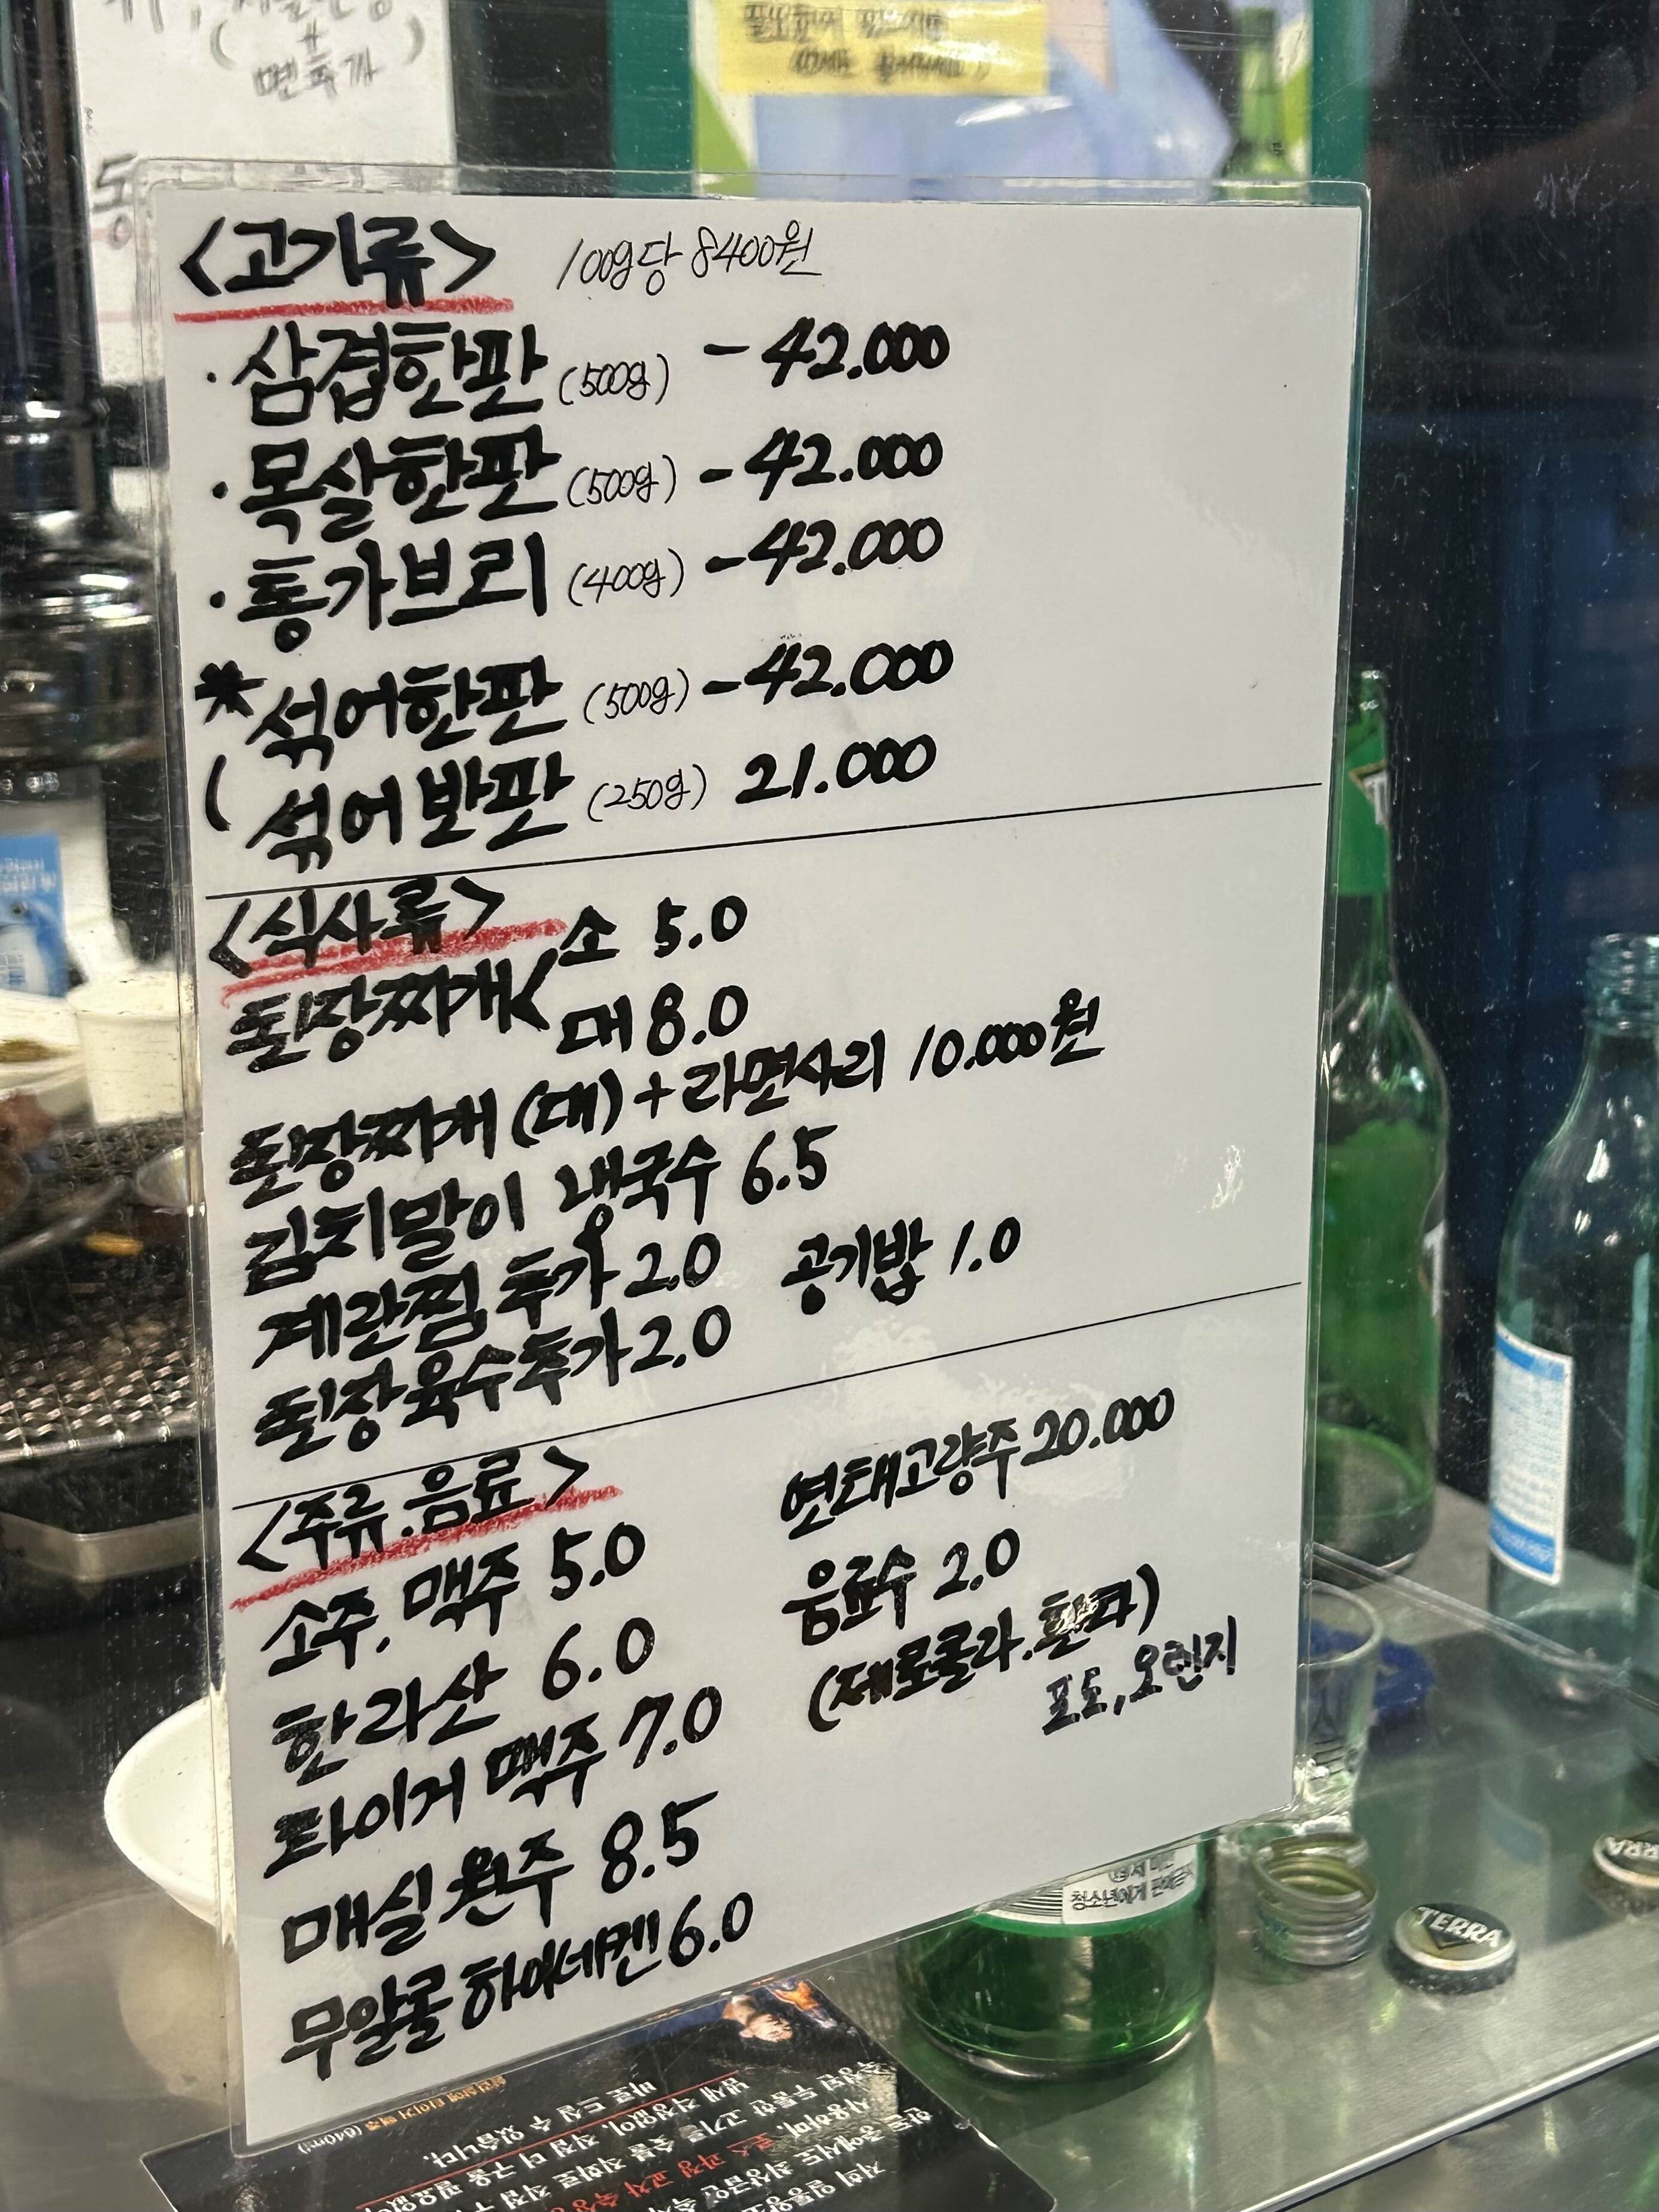 면추가
<고기류> 100g당 8400원
· 삼겹한판 (500g) - 42.000
· 목살한판 (500g) - 42.000
· 통가브리 (400g) - 42.000
* 섞어한판 (500g) - 42.000
( 섞어반판 (250g) 21.000
<식사류>
된장찌개 < 소 5.0
대 8.0
된장찌개 (대) + 라면사리 10.000원
김치말이 냉국수 6.5
계란찜 추가 2.0 공기밥 1.0
된장육수추가 2.0
<주류.음료>
연태고량주 20.000
소주, 맥주 5.0
음료수 2.0
(제로콜라.환타)
포도,오렌지
한라산 6.0
타이거 맥주 7.0
매실원주 8.5
무알콜 하이네켄 6.0
TERRA